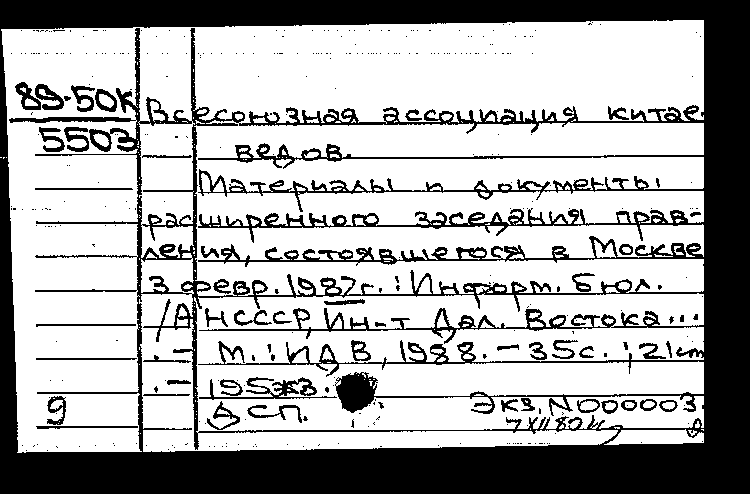 89-50К
5503
Всесоюзная ассоциация китае-
ведов.
Материалы и документы
расширенного заседания прав-
ления, состоявшегося в Москве
3 февр. 1987г. : Информ. бюл.
/АНСССР, Ин-т Дал. Востока...
.- М. : ИДВ, 1988. - 35с. ; 21cm
.- 195экз.
9
ДСП. Экз. N000003.